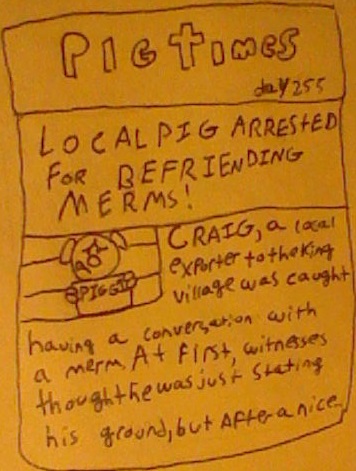 PIG TIMES
day 255
LOCAL PIG ARRESTED
FOR BEFRIENDING
MERMS!
CRAIG, a local
exporter to the king
village was caught
PIGGIE
having a conversation with
a merm. At first, witnesses
thought he was just stating
his ground, but After a nice